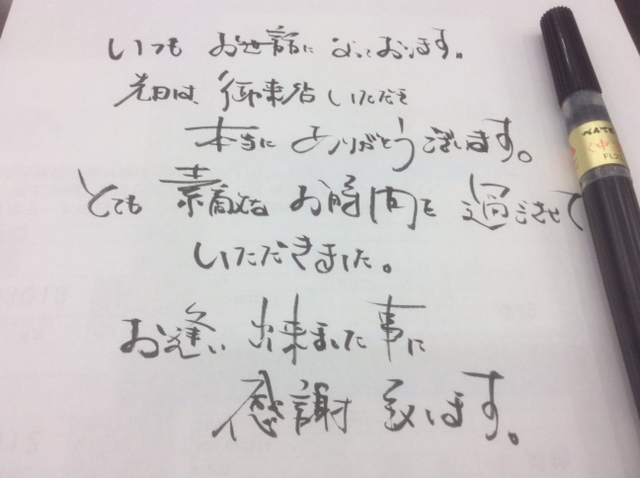 いつも お世話に なっております。
先日は 御来店 いただき
本当に ありがとうございます。
とても 素敵な お時間を 過ごさせて
いただきました。
お逢い 出来ました事に
感謝 致します。
ぺんてる
中